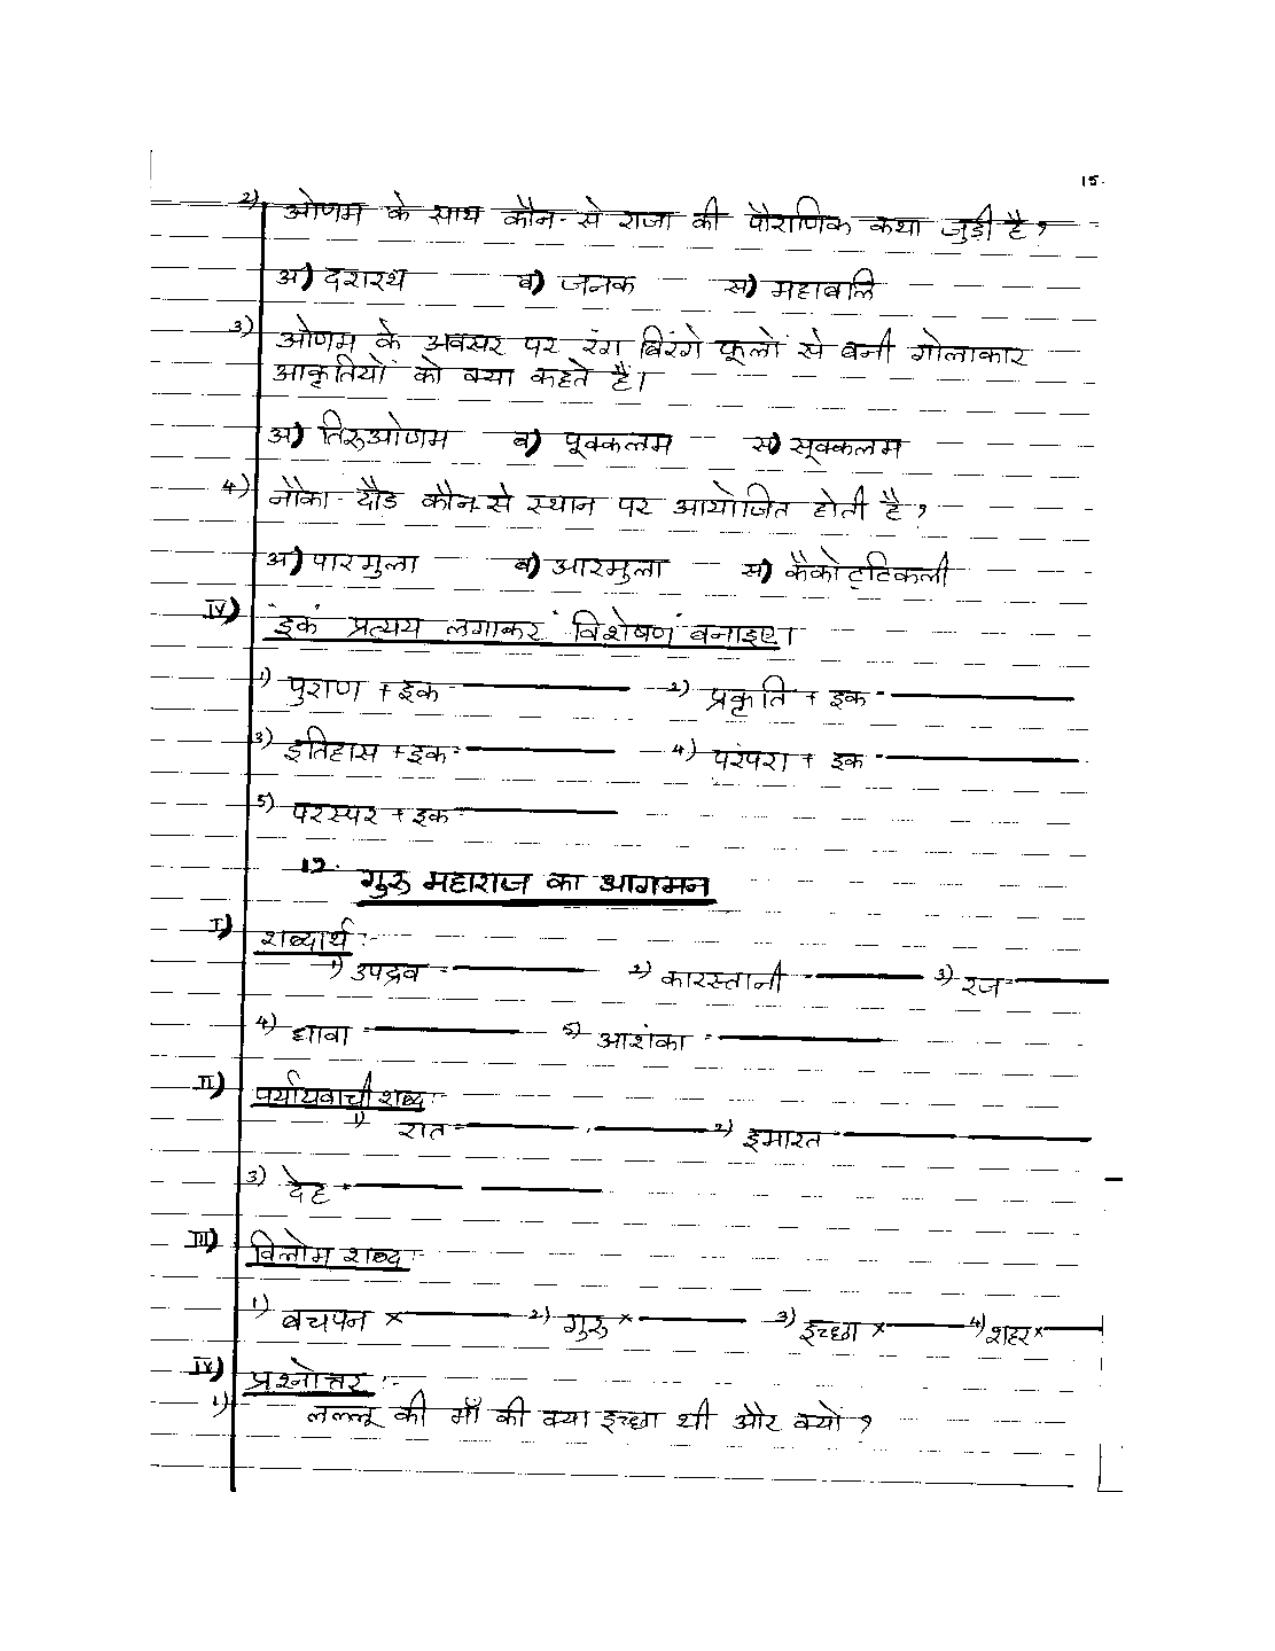 15.
2) ओणम के साथ कौन-से राजा की पौराणिक कथा जुड़ी है?
अ) दशरथ ब) जनक स) महाबलि
3) ओणम के अवसर पर रंग बिरंगे फूलों से बनी गोलाकार
आकृतियों को क्या कहते हैं।
अ) तिरुओणम ब) पूक्कलम स) सूक्कलम
4) नौका-दौड कौन-से स्थान पर आयोजित होती है?
अ) पारमुला ब) आरमुला स) कैकोट्टिकली
IV) 'इक' प्रत्यय लगाकर 'विशेषण' बनाइए।
1) पुराण + इक - 2) प्रकृति + इक -
3) इतिहास + इक - 4) परंपरा + इक -
5) परस्पर + इक -
12.
गुरु महाराज का आगमन
I) शब्दार्थ :-
1) उपद्रव - 2) कारस्तानी - 3) रज -
4) धावा - 5) आशंका -
II) पर्यायवाची शब्द :-
1) रात - , 2) इमारत -
3) देह -
III) विलोम शब्द :-
1) बचपन × 2) गुरु × 3) इच्छा × 4) शहर ×
IV) प्रश्नोत्तर :-
1) लल्लू की माँ की क्या इच्छा थी और क्यों?